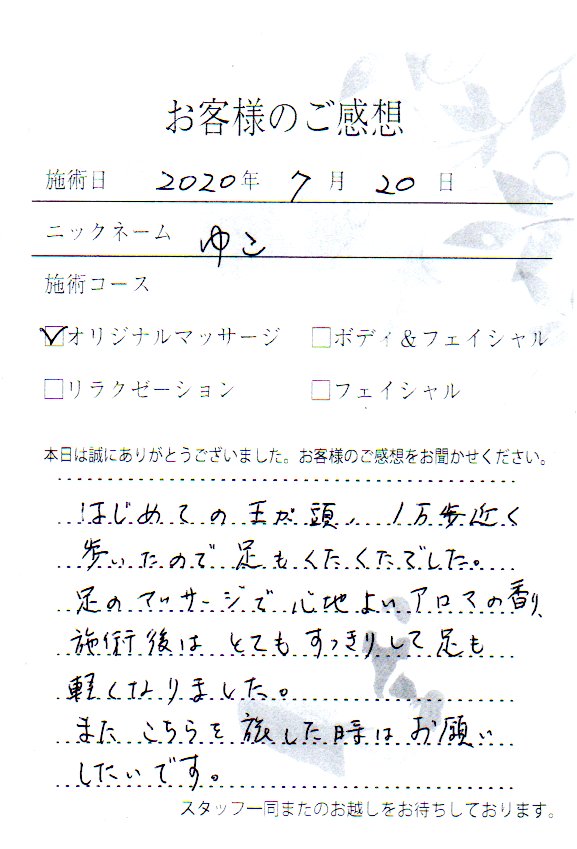 お客様のご感想
施術日 2020年 7月 20日
ニックネーム ゆこ
施術コース
オリジナルマッサージ ボディ&フェイシャル
リラクゼーション フェイシャル
本日は誠にありがとうございました。お客様のご感想をお聞かせください。
はじめての王が頭、1万歩近く
歩いたので足もくたくたでした。
足のマッサージで心地よいアロマの香り、
施術後はとてもすっきりして足も
軽くなりました。
またこちらを旅した時はお願い
したいです。
スタッフ一同またのお越しをお待ちしております。